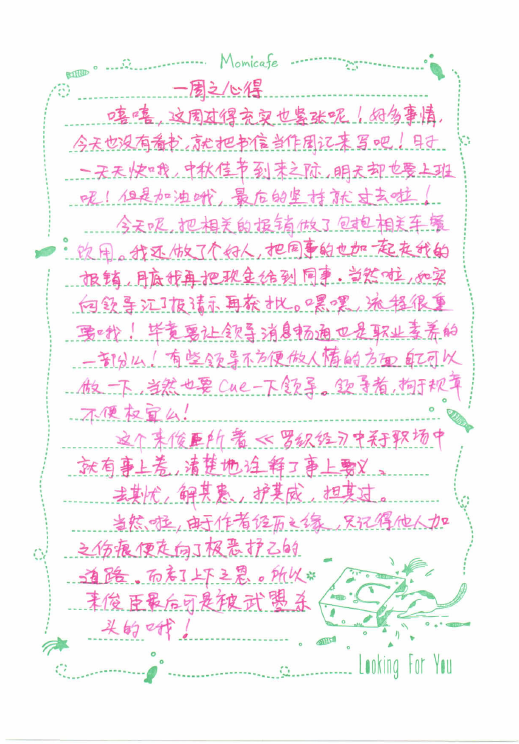 Momicafe
一周之心得
嘻嘻，这周过得充实也紧张呢！好多事情，
今天也没有看书，就把书信当作周记来写吧！日子
一天天快哦，中秋佳节到来之际，明天却也要上班
呢！但是加油哦，最后的坚持就过去啦！
今天呢，把相关的报销做了包括相关车餐
饮用。我还做了个好人，把同事的也加一起走我的
报销，月底我再把现金给到同事。当然啦，如实
向领导汇了报请示再获批。嘿嘿，流程很重
要哦！毕竟要让领导消息畅通也是职业素养的
一部分么！有些领导不方便做人情的方面自己可以
做一下，当然也要Cue一下领导。领导者，拘于规章
不便权宜么！
这个来俊臣所著《罗织经》中关于职场中
就有事上差，清楚地诠释了事上要义、
去其忧，解其患，护其威，担其过。
当然啦，由于作者经历之缘，只记得他人加
之伤痕便走向了极恶护己的
道路。而忘了上下之恩。所以
来俊臣最后可是被武盟杀
头的哦！
Looking For You